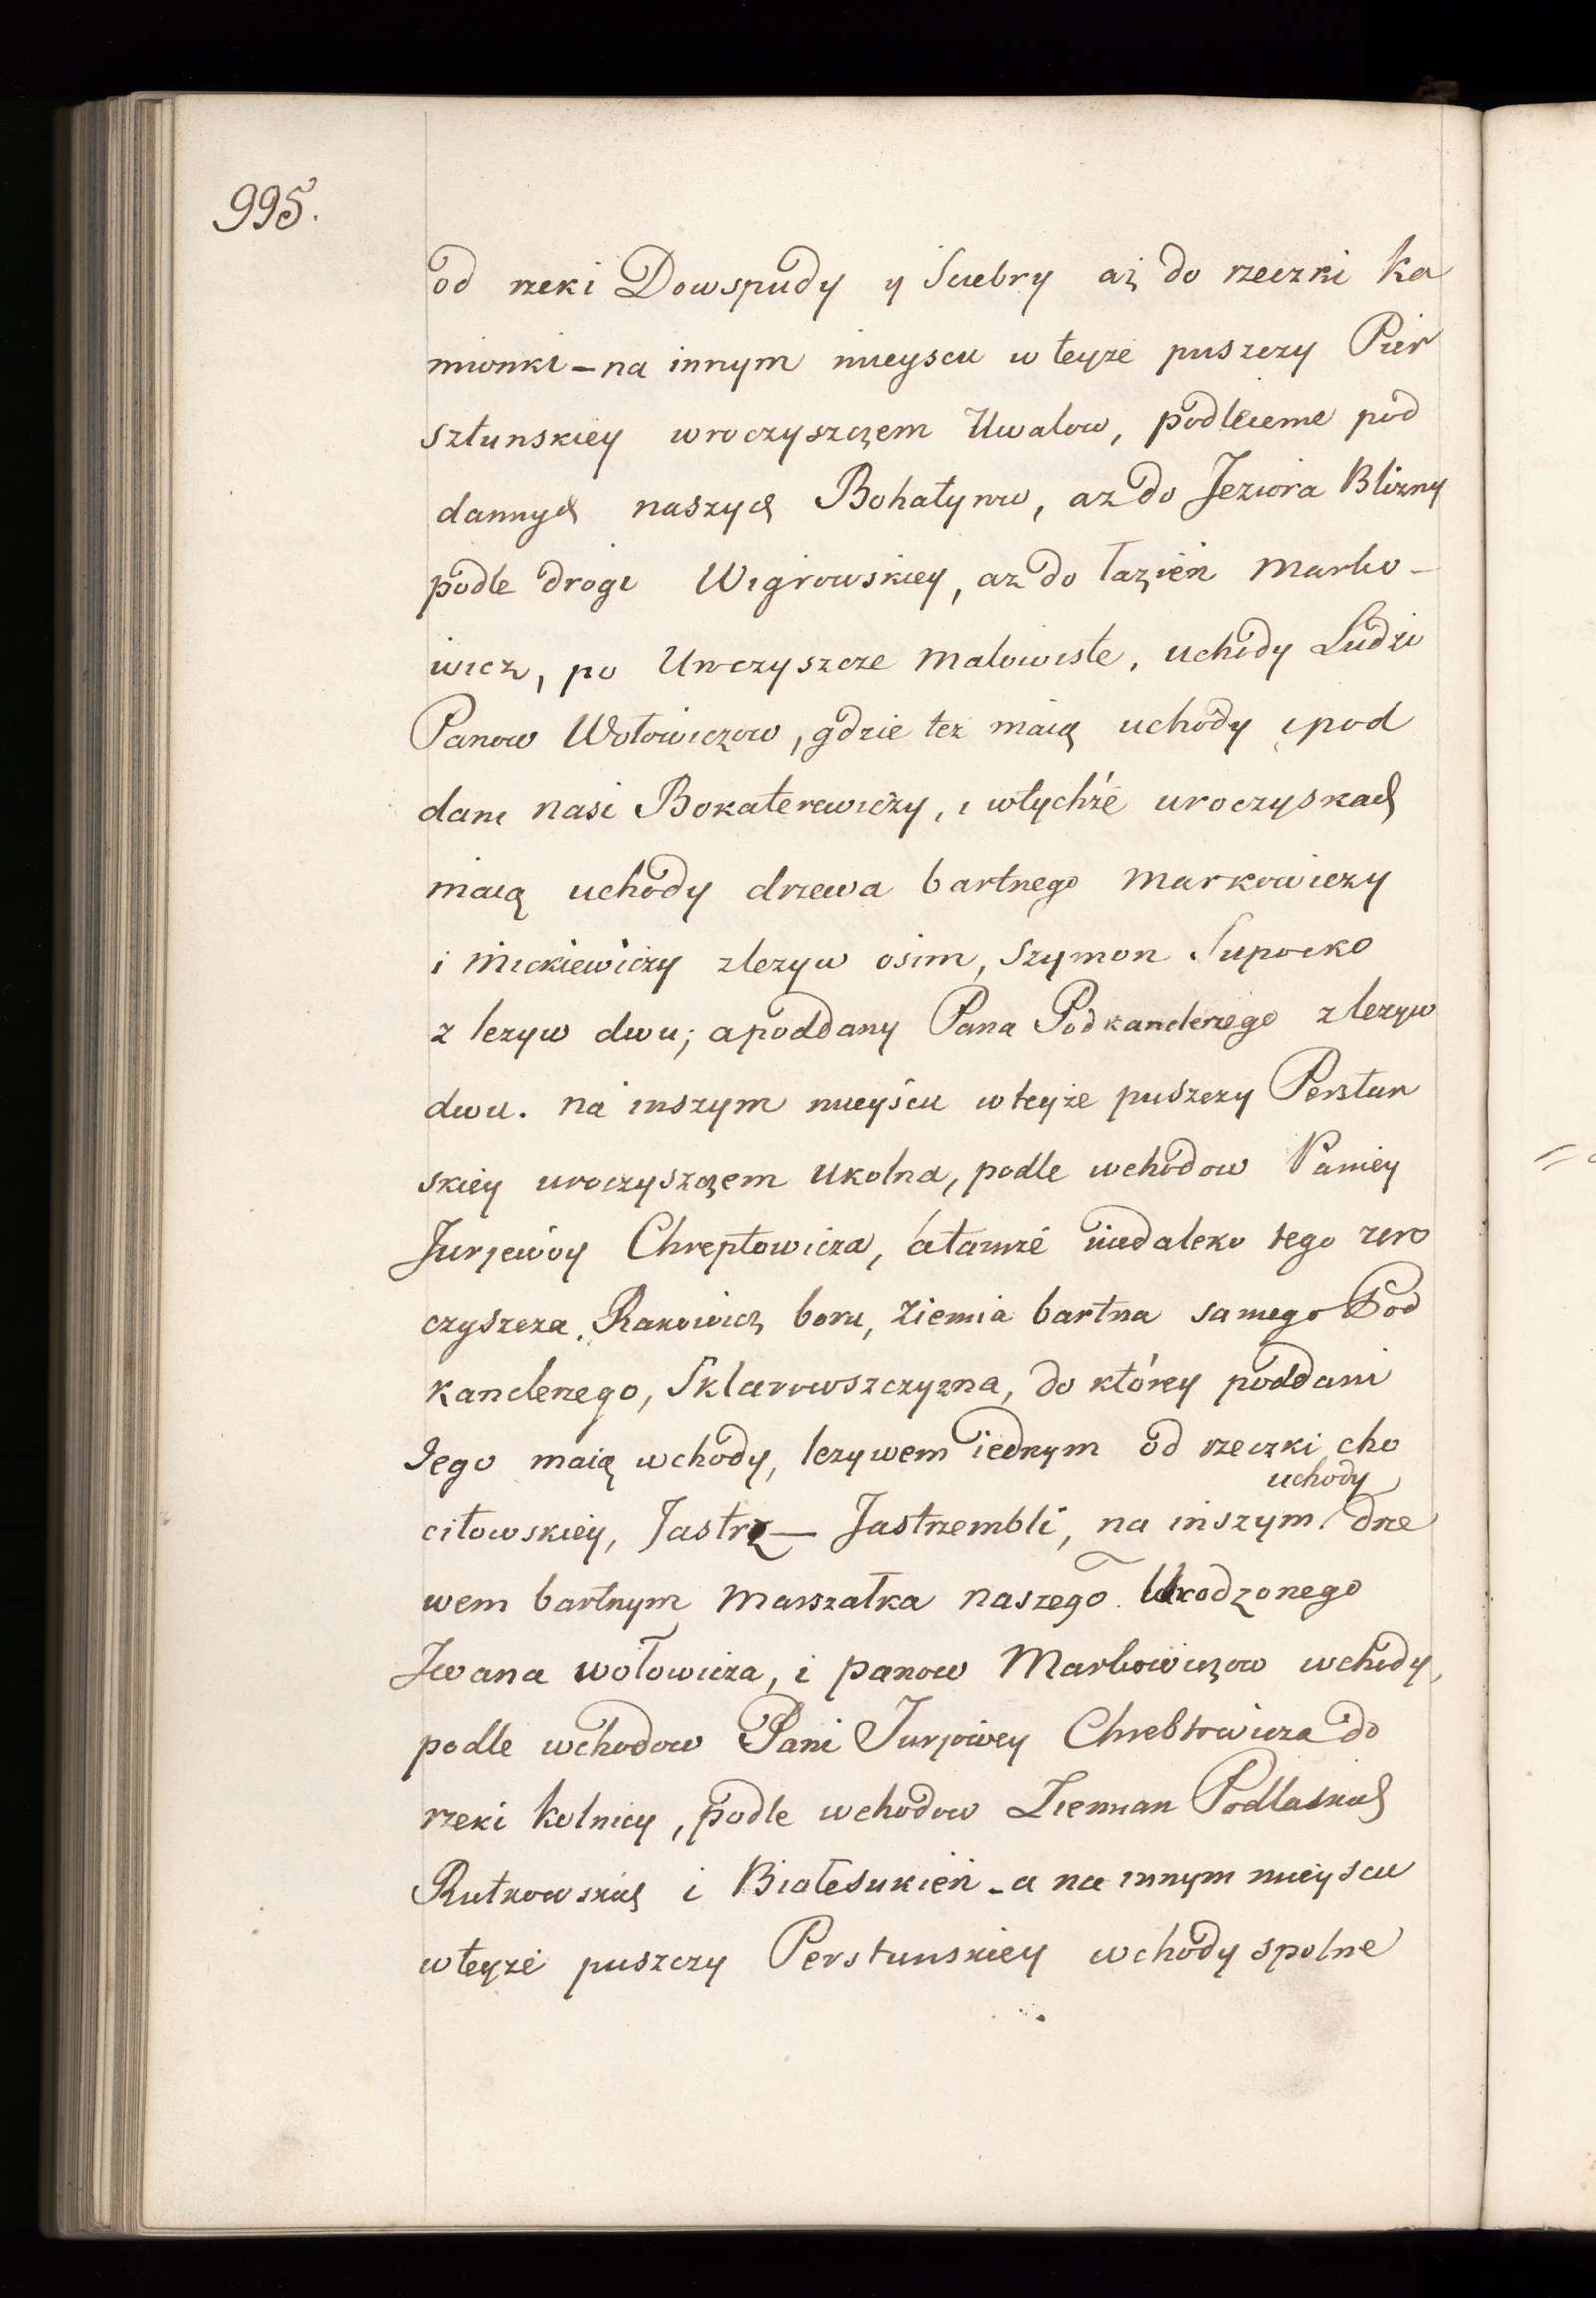 995.
od rzeki Dowspudy y Suebry aż do rzeczki Ka
mionki – na innym mieyscu w teyże puszczy Pier
sztunskiey wroczyszczem Uwalow, podleieme pod
dannych naszych Bohatyrow, az do Jeziora Blizny
podle drogi Wigrowskiey, az do łazień Marko –
wicz, po Uroczyszcze Malowiste, uchody Ludzi
Panow Wołowiczow, gdzie tez maią uchody ipod
dani nasi Bokaterewiczy, i wtychże uroczyskach
maią uchody drzewa bartnego Markowiczy
i Mickiewiczy zlezyw osim, Szymon Supocko
z lezyw dwu; apoddany Pana Podkanclerzego zlezyw
dwu. na inszym mieyscu w teyże puszczy Persztun
skiey uroczyszczem Ukolna, podle wchodow Paniey
Jurjewoy Chreptowicza, atamże niedaleko tego uro
czyszcza, Rakowicz boru, Ziemia bartna samego Pod
kanclerzego, Sklarowszczyzna, do którey poddani
Jego maią wchody, lezywem iednym od rzeczki cho
uchody
ciłowskiey, Jastrz – Jastrzembli, na inszym drze
wem bartnym Marszałka naszego Urodzonego
Jwana wołowicza, i panow Markowiczow wchody,
podle wchodow Pani Jurjowey Chrebtowicza do
rzeki kolnicy, podle wchodow Ziemian Podlaskich
Rutkowskich i Białesukień – a na innym mieyscu
wteyże puszczy Perstunskiey wchody spolne